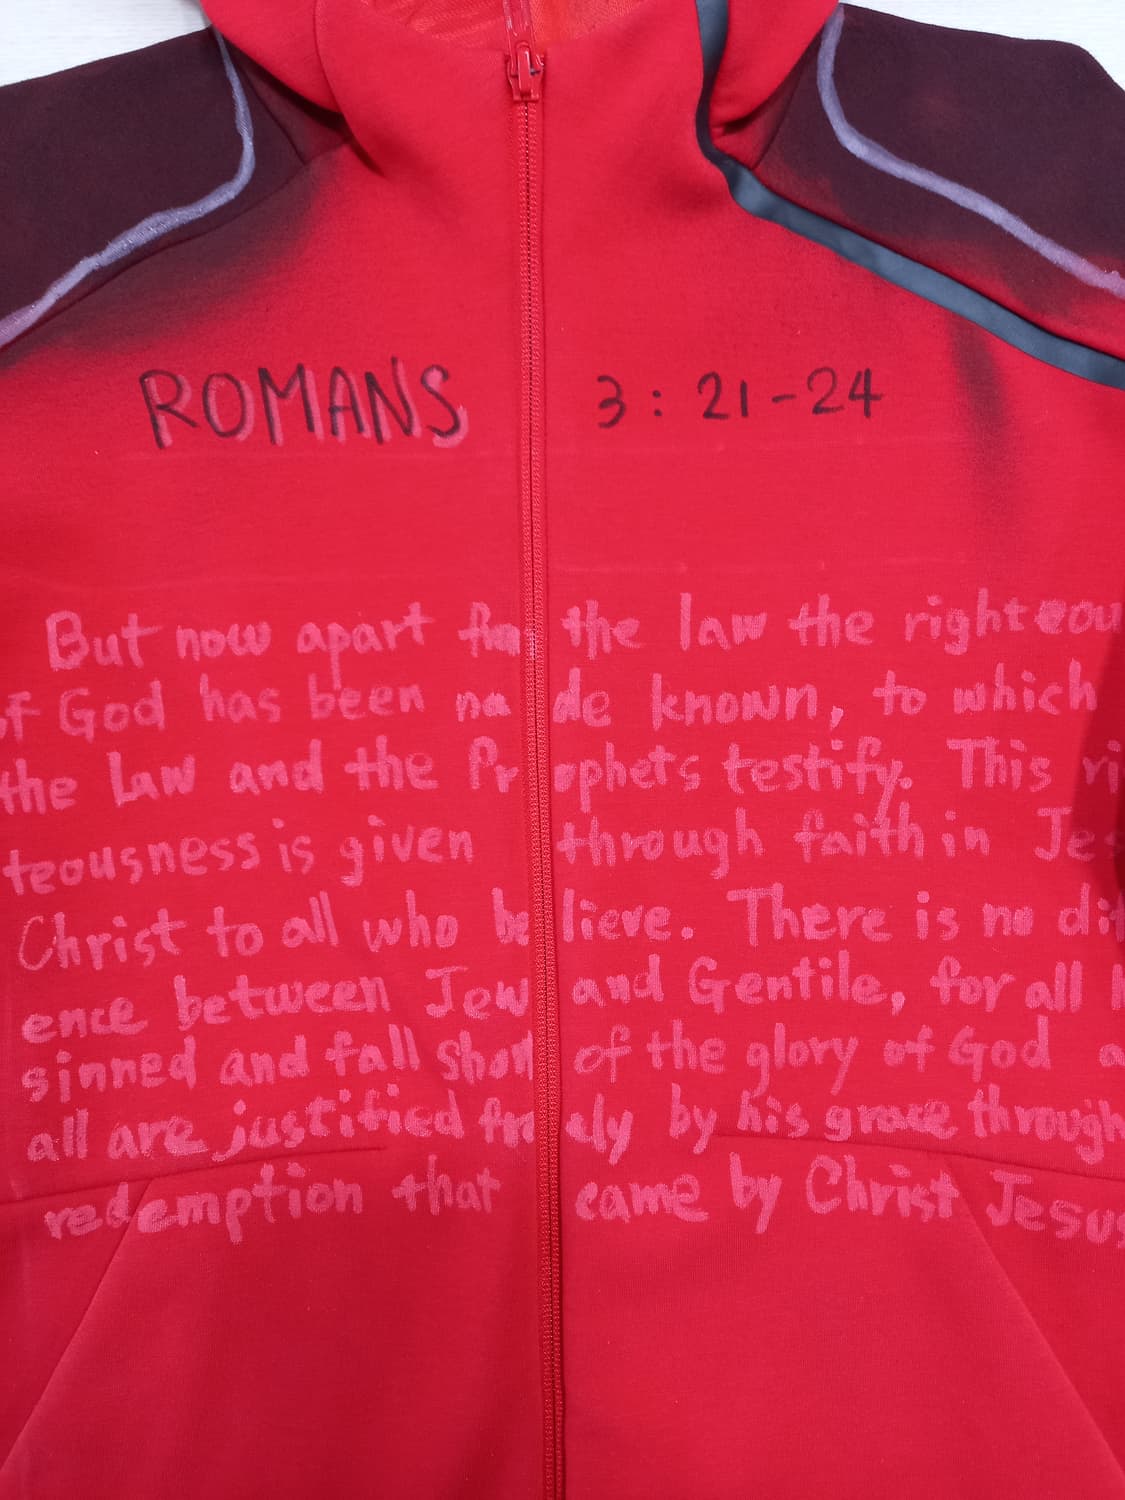 ROMANS 3:21-24
But now apart from the law the righteou
of God has been made known, to which
the Law and the Prophets testify. This ri
teousness is given through faith in Jes
Christ to all who believe. There is no dif
ence between Jew and Gentile, for all h
sinned and fall short of the glory of God a
all are justified freely by his grace through
redemption that came by Christ Jesus